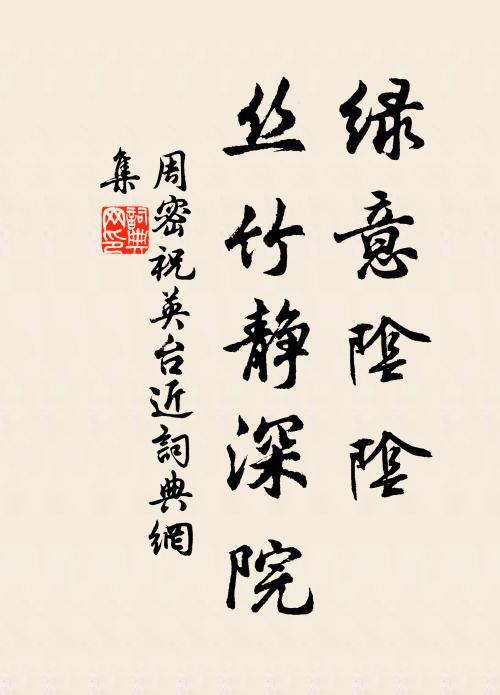 绿意陰陰
丝竹静深院
周密祝英台近詞典網
集
詞典
网印